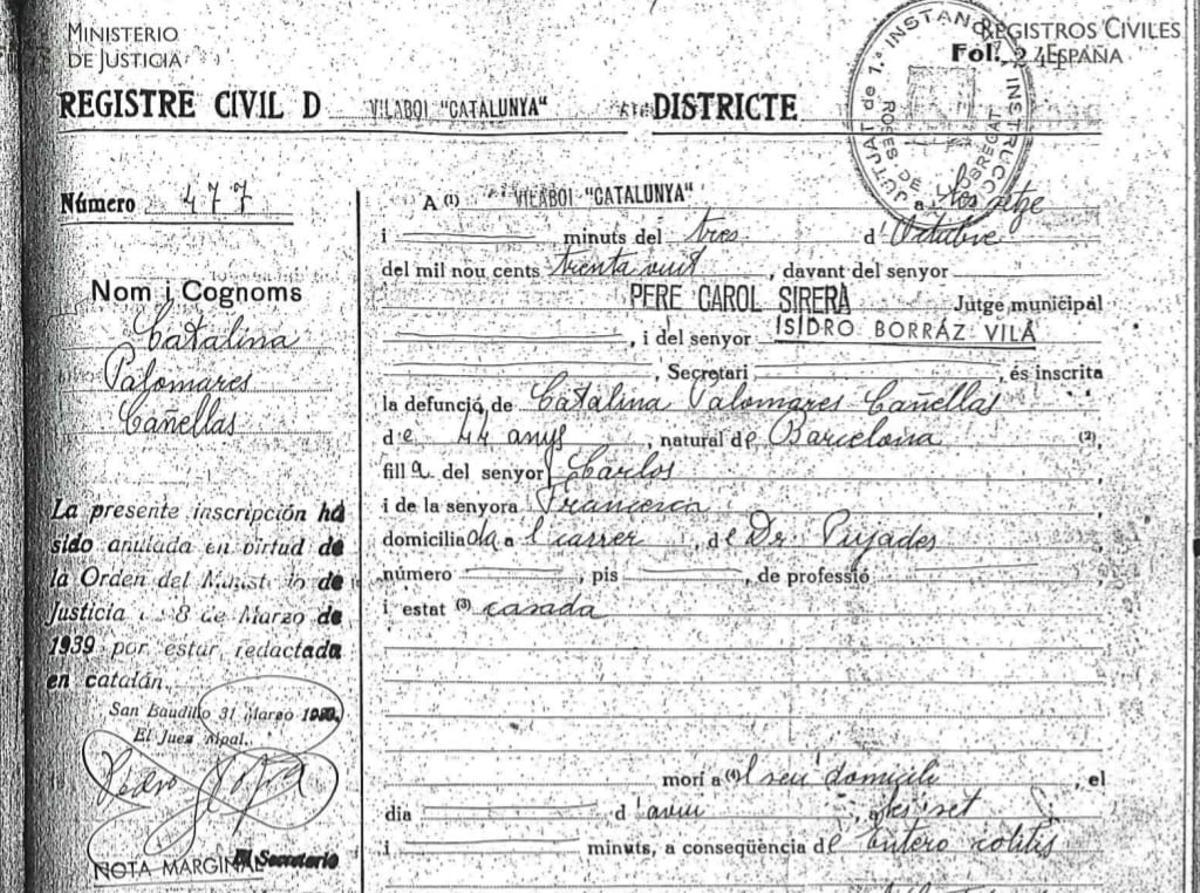 MINISTERIO
DE JUSTICIA
REGISTROS CIVILES
ESPAÑA
Fol. 24
JUTJAT de 1.ª INSTANCIA INSTRUCCIO
DE LLOBREGAT
REGISTRE CIVIL D VILABOI "CATALUNYA" DISTRICTE
Número 477
Nom i Cognoms
Catalina
Palomares
Cañellas
La presente inscripción ha
sido anulada en virtud de
la Orden del Ministerio de
Justicia 8 de Marzo de
1939 por estar redactada
en catalán.
San Baudilio 31 Marzo
El Juez Mpal.
Pedro
El Secretario
NOTA MARGINAL
A (1) VILABOI "CATALUNYA" a les
i minuts del tres d'Octubre
del mil nou cents trenta vuit, davant del senyor
PERE CAROL SIRERA Jutge municipal
, i del senyor ISIDRO BORRÁZ VILÁ
, Secretari , és inscrita
la defunció de Catalina Palomares Cañellas
de 44 anys, natural de Barcelona (2),
filla del senyor Carlos ,
i de la senyora Francesca ,
domiciliada a l carrer, del Dr. Pujades ,
número , pis , de professió
i estat (3) casada
morí a (4) l seu domicili, el
dia d'avui, a les set
i minuts, a conseqüència de Entero colitis